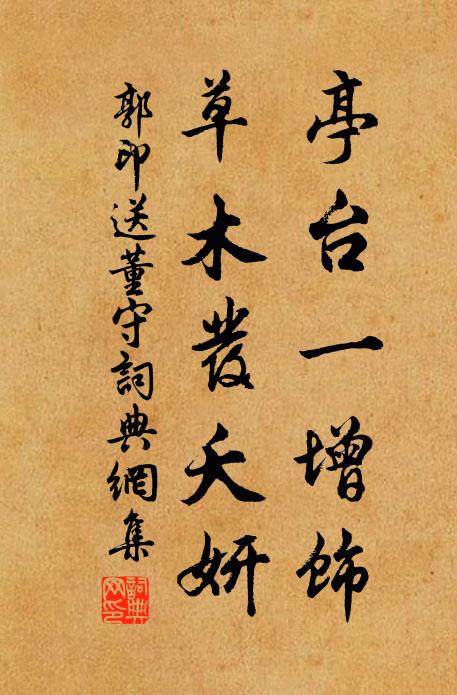 亭台一增飾
草木發夭妍
郭印送董守詞典網集
詞典网印